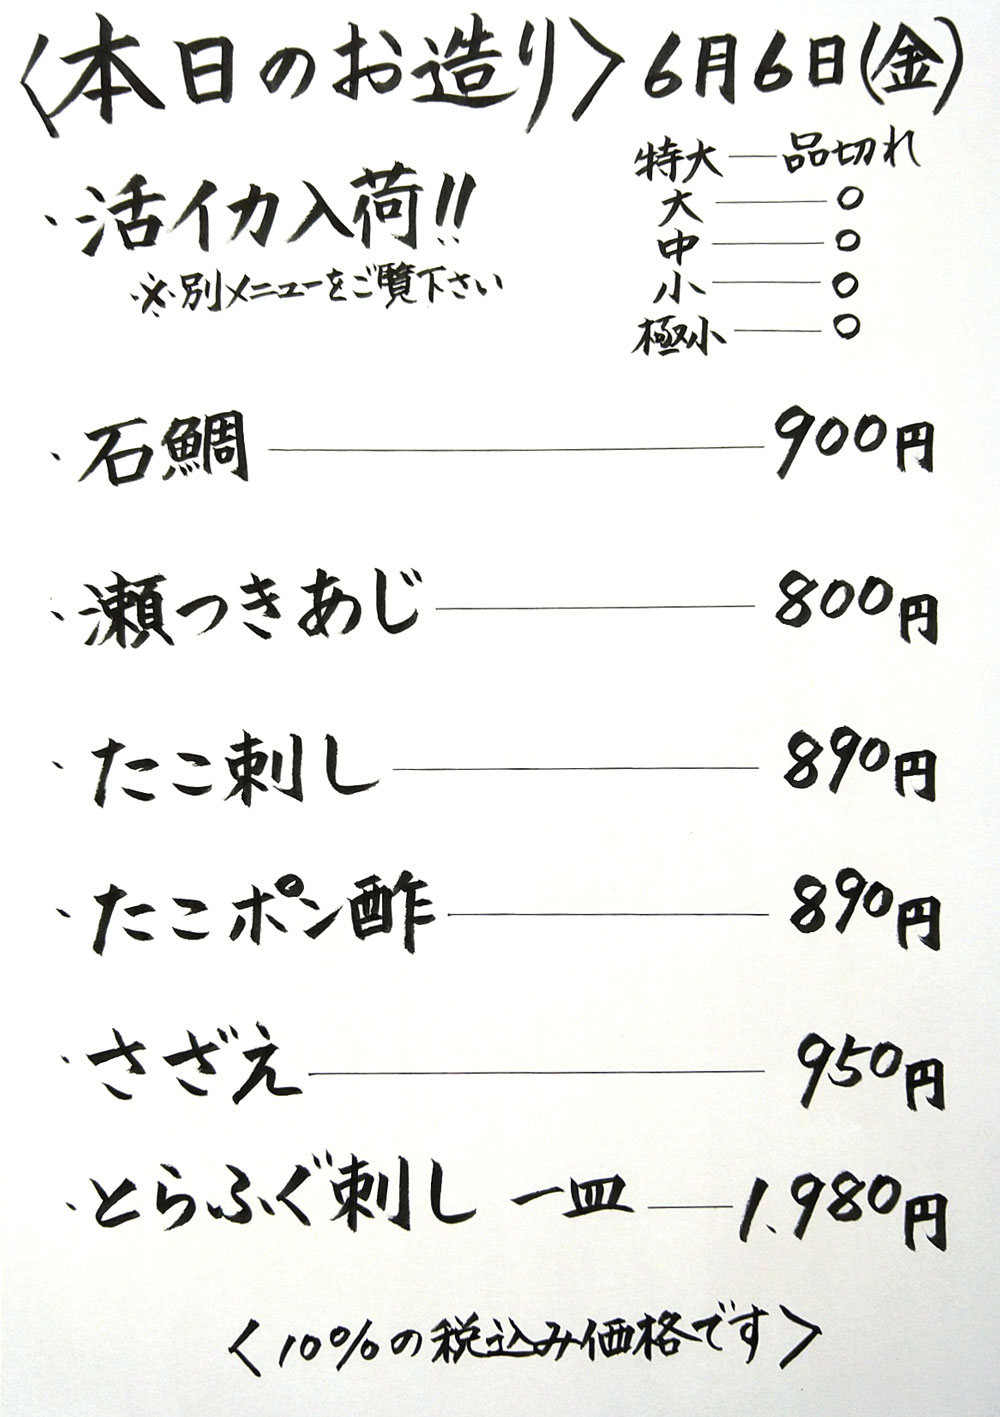 〈本日のお造り〉6月6日(金)
・活イカ入荷!!
※別メニューをご覧下さい
特大―品切れ
大―○
中―○
小―○
極小―○
・石鯛―900円
・瀬つきあじ―800円
・たこ刺し―890円
・たこポン酢―890円
・さざえ―950円
・とらふぐ刺し 一皿―1,980円
〈10%の税込み価格です〉